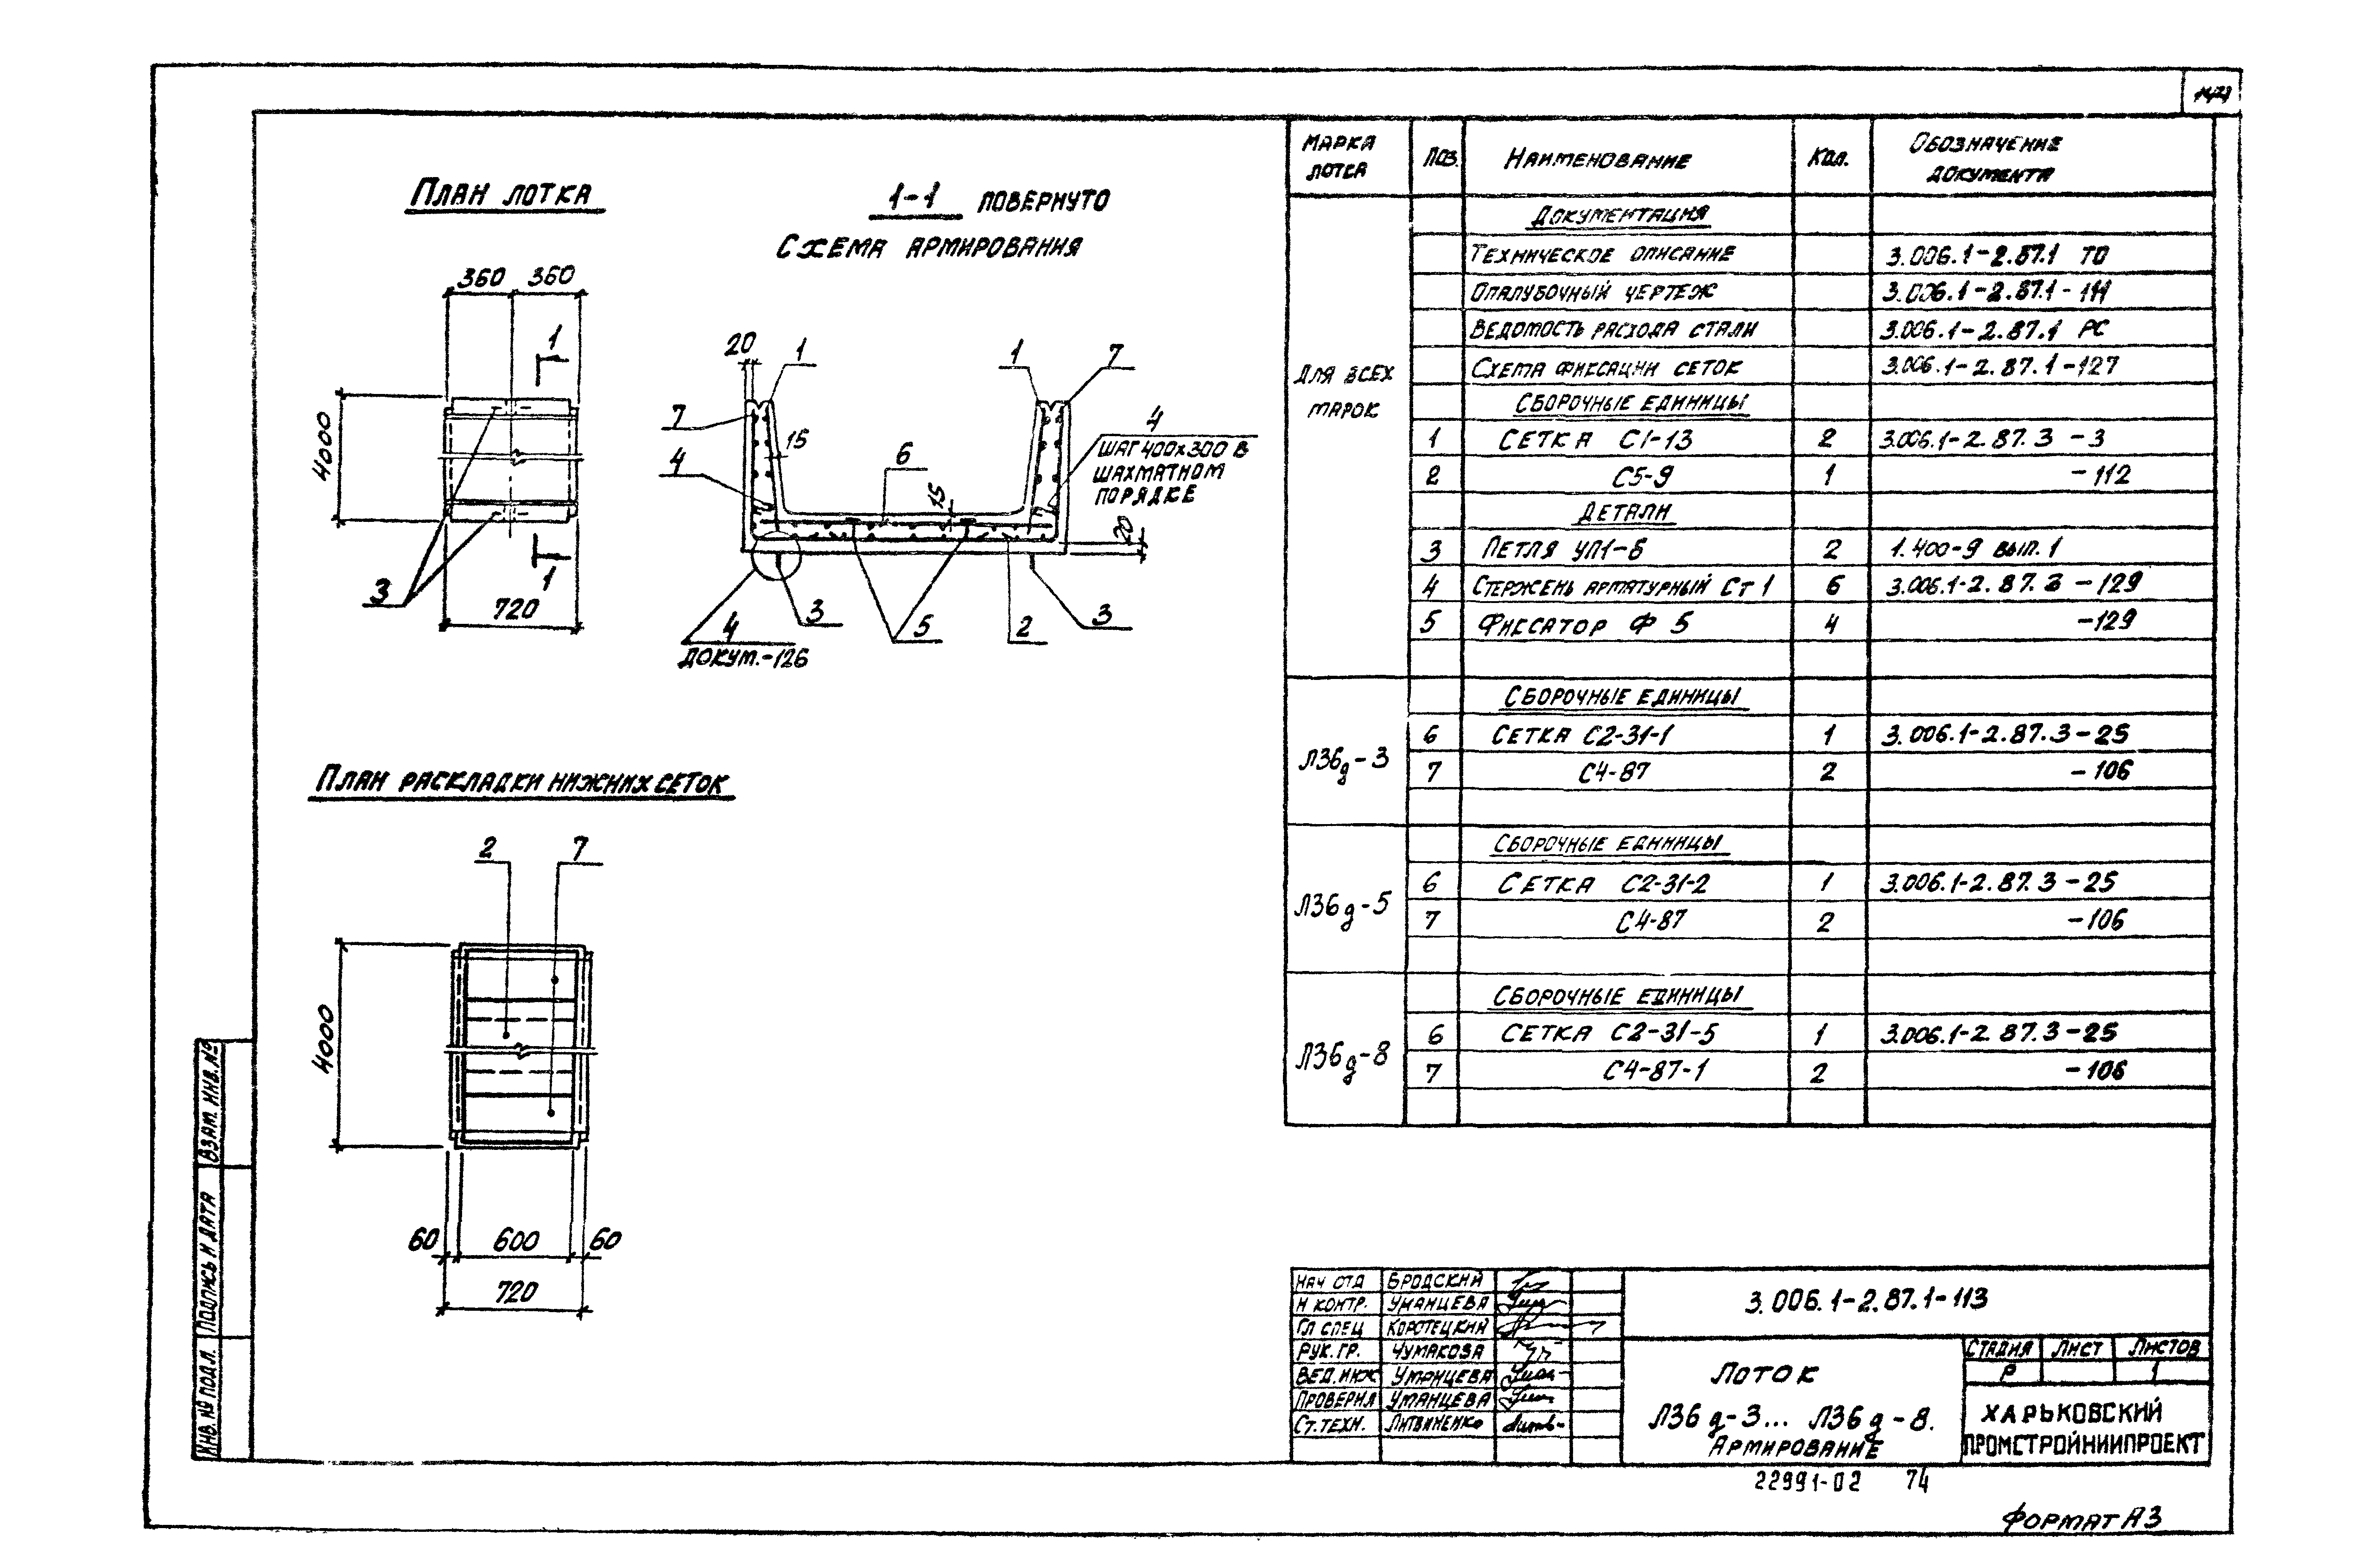 План лотка
360 360
1
4000
3
1
720
1-1 повернуто
Схема армирования
20 1 1 7
7
15
4
6
15
4
шаг 400х300 в
шахматном
порядке
20
4
докум.-126
3 5 2 3
План раскладки нижних сеток
2 7
4000
60 600 60
720
Марка лотка Поз. Наименование Кол. Обозначение документа
Для всех марок
Документация
Техническое описание 3.006.1-2.87.1 ТО
Опалубочный чертеж 3.006.1-2.87.1-111
Ведомость расхода стали 3.006.1-2.87.1 РС
Схема фиксации сеток 3.006.1-2.87.1-127
Сборочные единицы
1 Сетка С1-13 2 3.006.1-2.87.3-3
2 С5-9 1 -112
Детали
3 Петля УП1-6 2 1.400-9 вып.1
4 Стержень арматурный Ст 1 6 3.006.1-2.87.3-129
5 Фиксатор Ф 5 4 -129
Л36д-3
Сборочные единицы
6 Сетка С2-31-1 1 3.006.1-2.87.3-25
7 С4-87 2 -106
Л36д-5
Сборочные единицы
6 Сетка С2-31-2 1 3.006.1-2.87.3-25
7 С4-87 2 -106
Л36д-8
Сборочные единицы
6 Сетка С2-31-5 1 3.006.1-2.87.3-25
7 С4-87-1 2 -106
Взам. инв. №
Подпись и дата
Инв. № подл.
Нач отд Бродский
Н контр. Уманцева
Гл спец Коротецкий
Рук. гр. Чумакова
Вед. инж Уманцева
Проверил Уманцева
Ст. техн. Литвиненко
3.006.1-2.87.1-113
Лоток
Л36д-3... Л36д-8.
Армирование
Стадия Лист Листов
Р 1
Харьковский
Промстройниипроект
22991-02 74
Формат А3